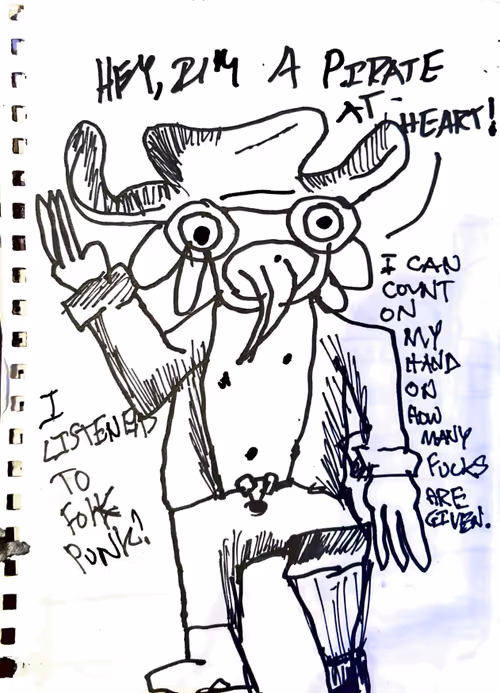 HEY, I'M A PIRATE
AT
HEART!
I CAN
COUNT
ON
MY
HAND
ON
HOW
MANY
FUCKS
ARE
GIVEN.
I
LISTENED
TO
FOLK
PUNK!